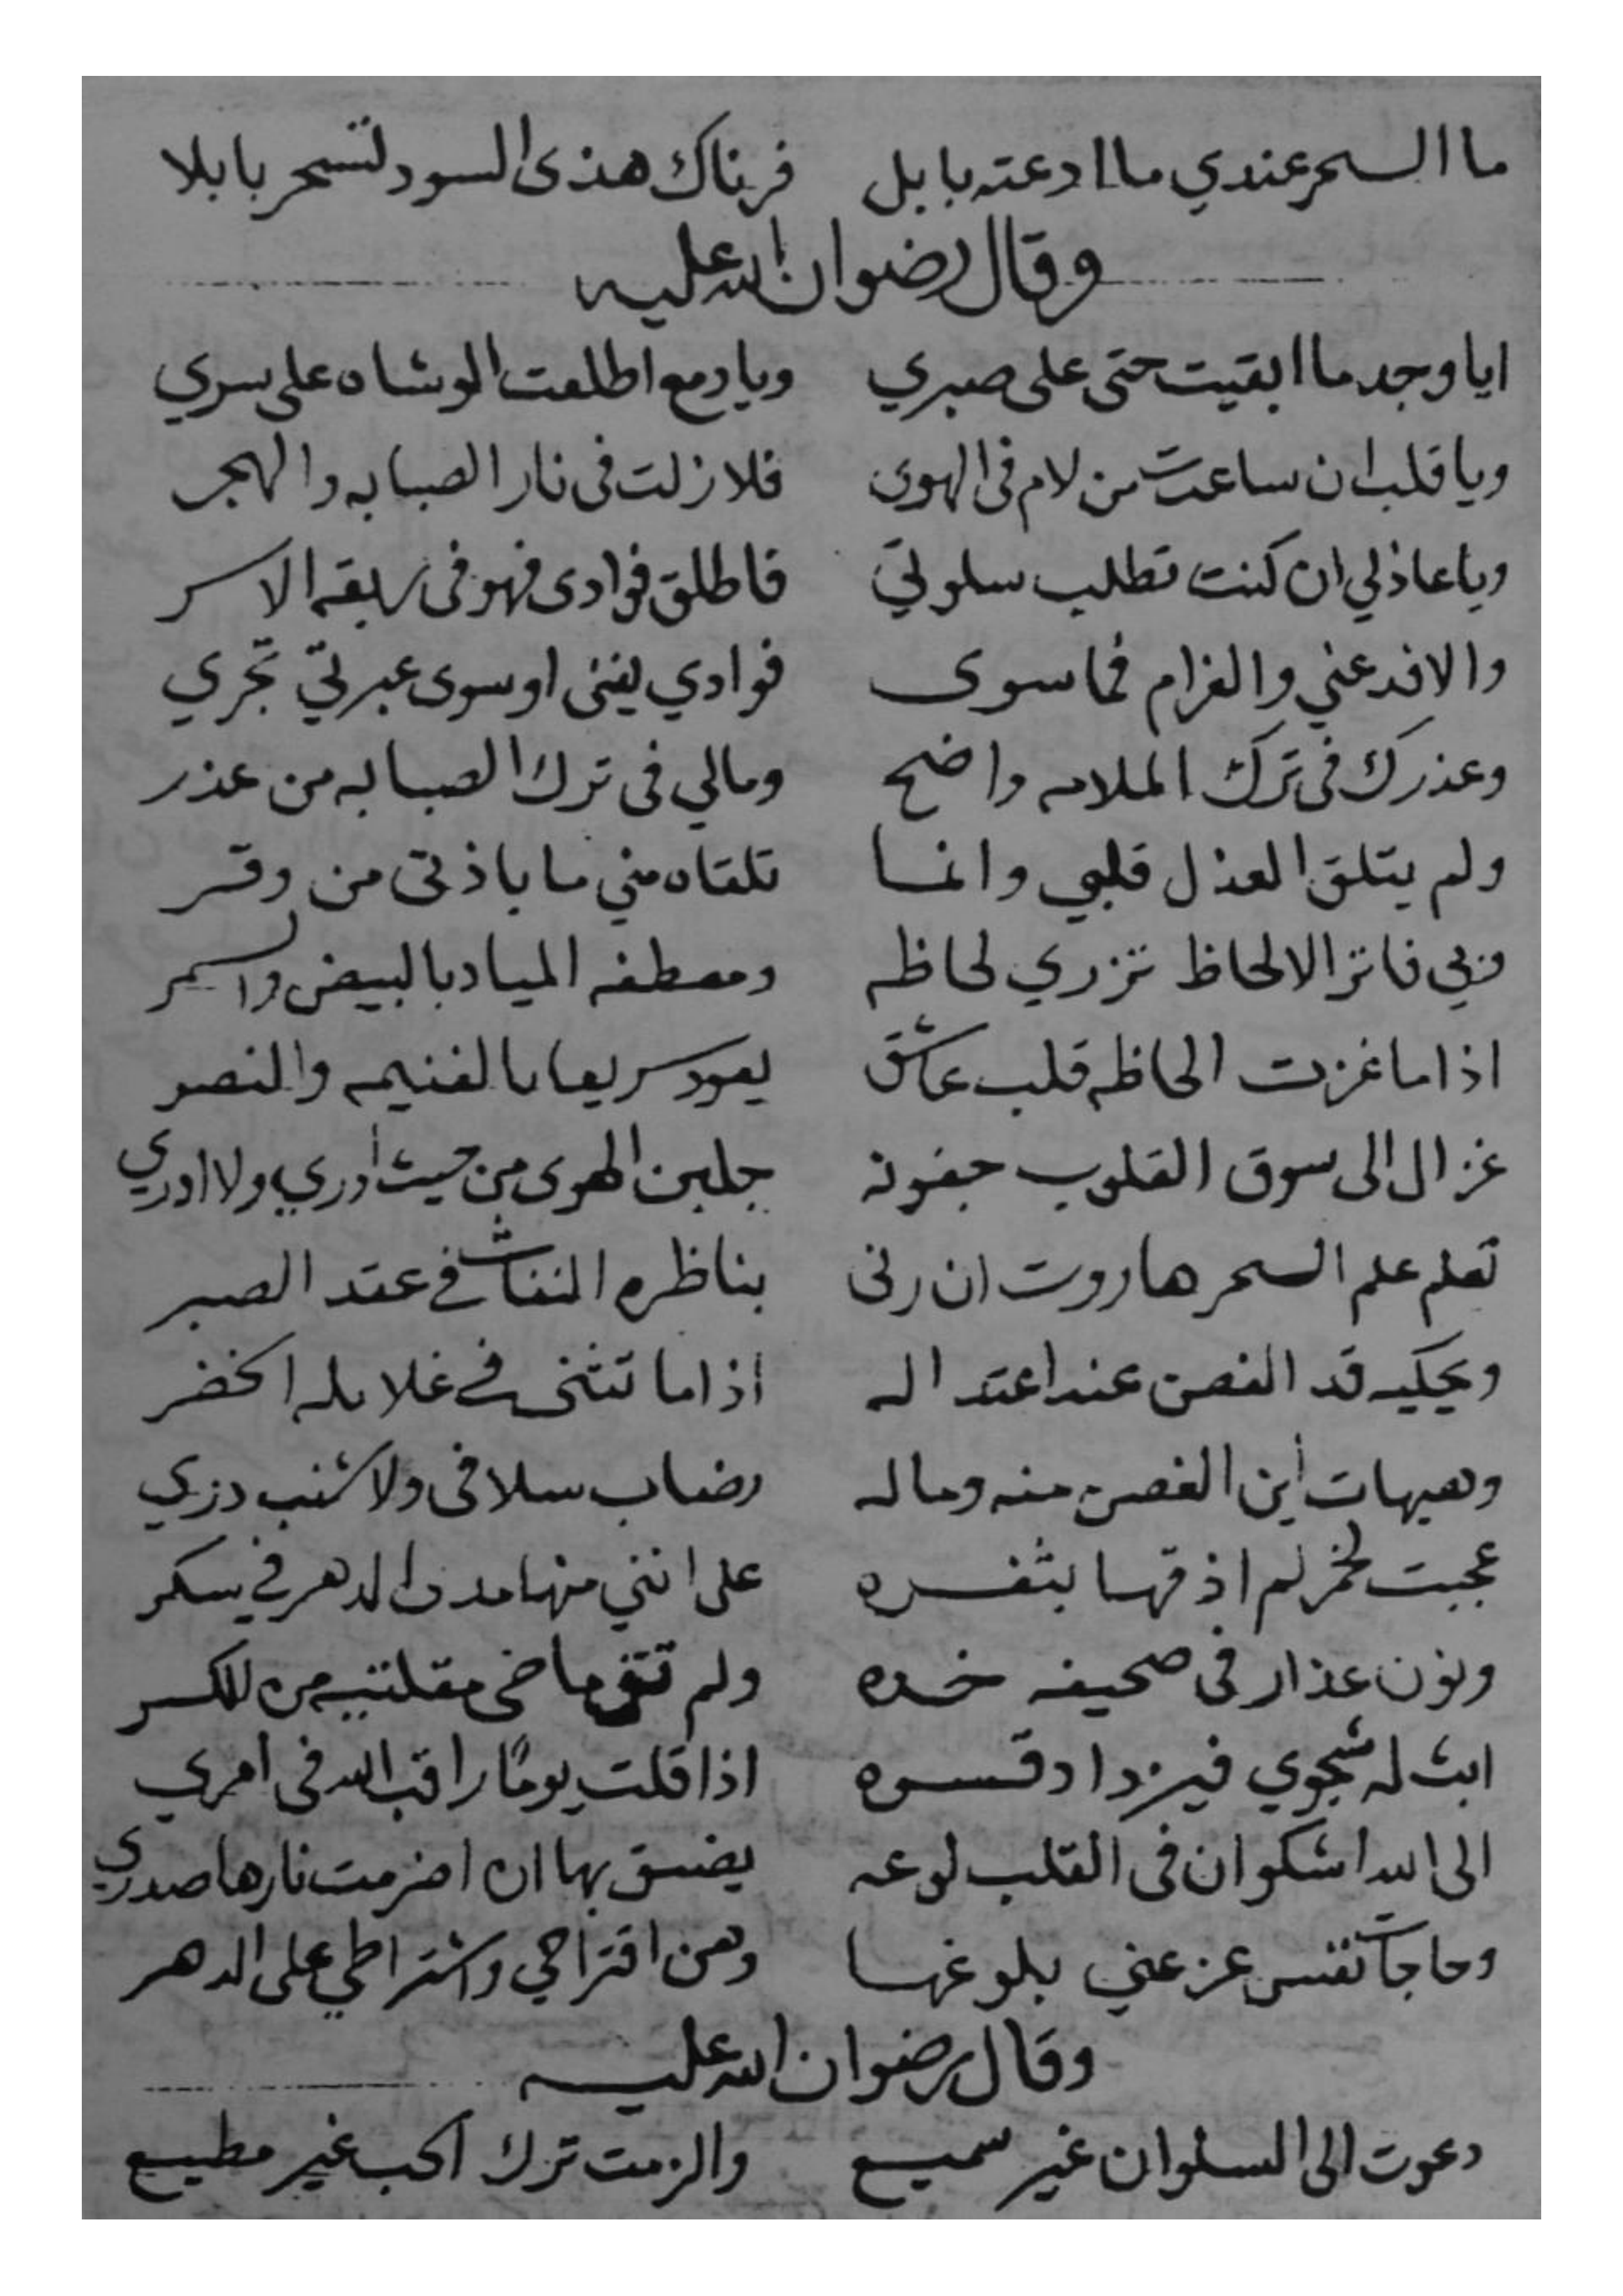 ما السحر عندي ما ادعته بابل فرناك هذى السود لتسحر بابلا
وقال رضوان الله عليه
ايا وجد ما ابقيت حتى على صبري ويا دمع اطلعت الوشاه على سري
ويا قلب ان ساعدت من لام فى الهوى فلا زلت فى نار الصبابه والهجر
ويا عاذلي ان كنت تطلب سلوتي فاطلق فوادى فهو فى ربقه الاسر
والا فدعني والغرام فما سوى فوادي يفنى او سوى عبرتي تجري
وعذرك فى ترك الملامه واضح ومالي فى ترك الصبابه من عذر
ولم يتلق العذل قلبي وانما تلقاه مني ما باذنى من وقر
وبي فاتر الالحاظ تزري لحاظه ومعطفه المياد بالبيض والسمر
اذا ما غزت الحاظه قلب عاشق يعود سريعا بالغنيمه والنصر
غزال الى سوق القلوب جفونه جلبن الهوى من حيث أدري ولا ادري
تعلم علم السحر هاروت ان رنى بناظره النفاث في عقد الصبر
ويحكيه قد الغصن عند اعتداله اذا ما تثنى في غلايله الخضر
وهيهات أين الغصن منه وماله رضاب سلافى ولا شنب دري
عجبت لخمر لم اذقها بثغره على انني منها مدى الدهر في سكر
ونون عذار فى صحيفه خده ولم تتق ماضي مقلتيه من الكسر
ابث له شجوي فيزداد قسوه اذا قلت يومًا راقب الله فى امري
الى الله اشكو ان فى القلب لوعه يضيق بها ان اضرمت نارها صدري
وحاجات نفس عز عني بلوغها وهن اقتراحي واشتراطي على الدهر
وقال رضوان الله عليه
دعوت الى السلوان غير سميع والزمت ترك الحب غير مطيع